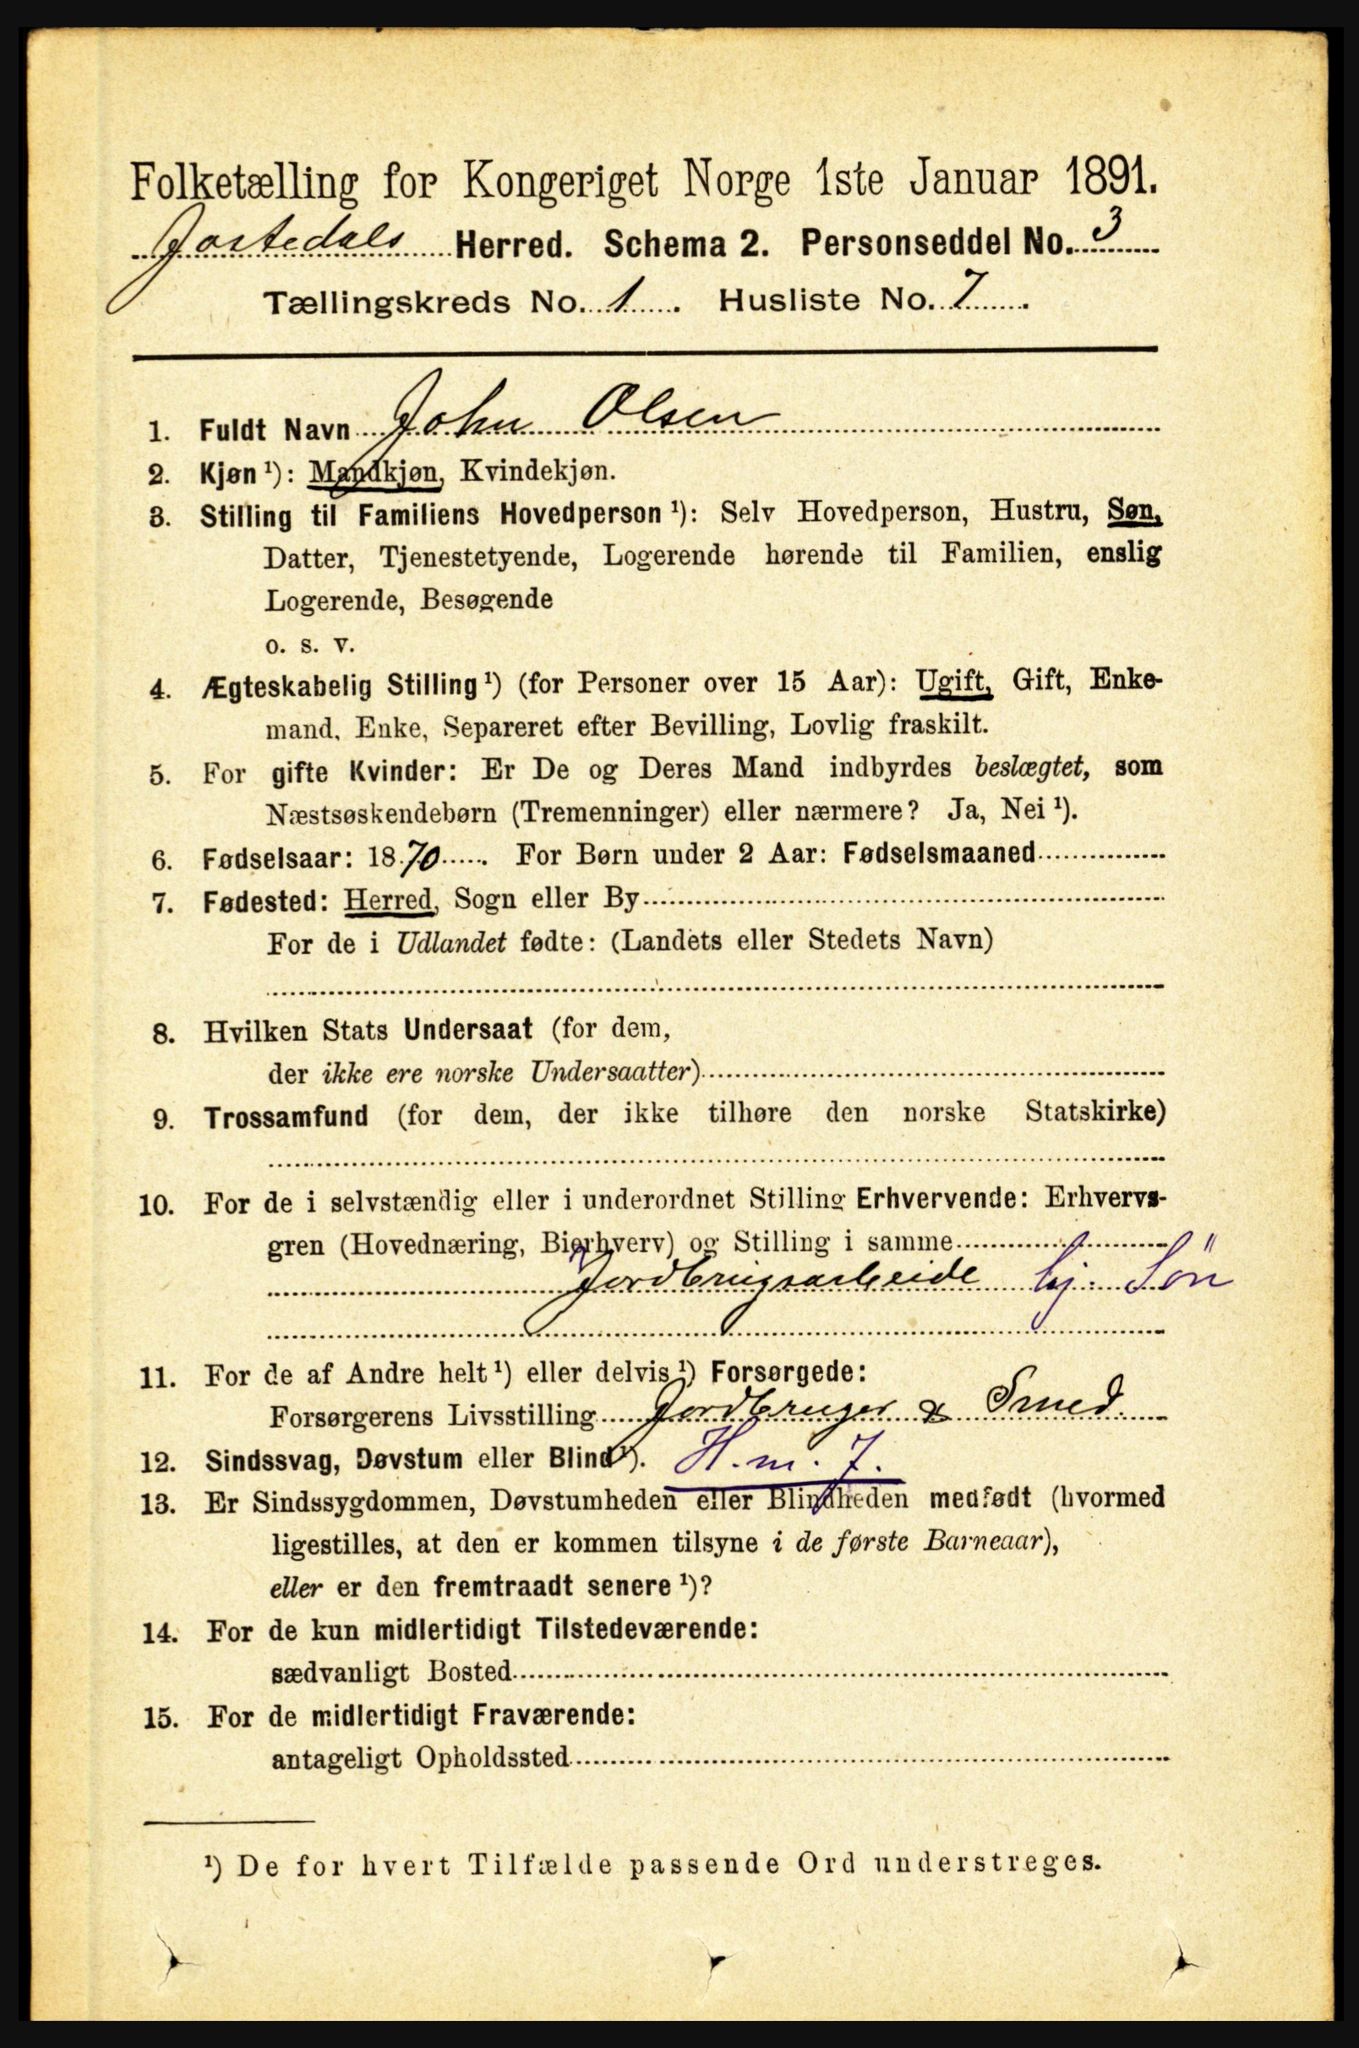 Folketælling for Kongeriget Norge 1ste Januar 1891.
Jostedals Herred. Schema 2. Personseddel No. 3
Tællingskreds No. 1. Husliste No. 7.
1. Fuldt Navn John Olsen
2. Kjøn¹): Mandkjøn, Kvindekjøn.
3. Stilling til Familiens Hovedperson¹): Selv Hovedperson, Hustru, Søn,
Datter, Tjenestetyende, Logerende hørende til Familien, enslig
Logerende, Besøgende
o. s. v.
4. Ægteskabelig Stilling¹) (for Personer over 15 Aar): Ugift, Gift, Enke-
mand, Enke, Separeret efter Bevilling, Lovlig fraskilt.
5. For gifte Kvinder: Er De og Deres Mand indbyrdes beslægtet, som
Næstsøskendebørn (Tremenninger) eller nærmere? Ja, Nei¹).
6. Fødselsaar: 1870. For Børn under 2 Aar: Fødselsmaaned
7. Fødested: Herred, Sogn eller By
For de i Udlandet fødte: (Landets eller Stedets Navn)
8. Hvilken Stats Undersaat (for dem,
der ikke ere norske Undersaatter)
9. Trossamfund (for dem, der ikke tilhøre den norske Statskirke)
10. For de i selvstændig eller i underordnet Stilling Erhvervende: Erhvervs-
gren (Hovednæring, Bierhverv) og Stilling i samme
Jordbrugsarbeide hj. Sön
11. For de af Andre helt¹) eller delvis¹) Forsørgede:
Forsørgerens Livsstilling Jordbruger & Smed.
12. Sindssvag, Døvstum eller Blind¹). H. m. 7.
13. Er Sindssygdommen, Døvstumheden eller Blindheden medfødt (hvormed
ligestilles, at den er kommen tilsyne i de første Barneaar),
eller er den fremtraadt senere¹)?
14. For de kun midlertidigt Tilstedeværende:
sædvanligt Bosted
15. For de midlertidigt Fraværende:
antageligt Opholdssted
¹) De for hvert Tilfælde passende Ord understreges.